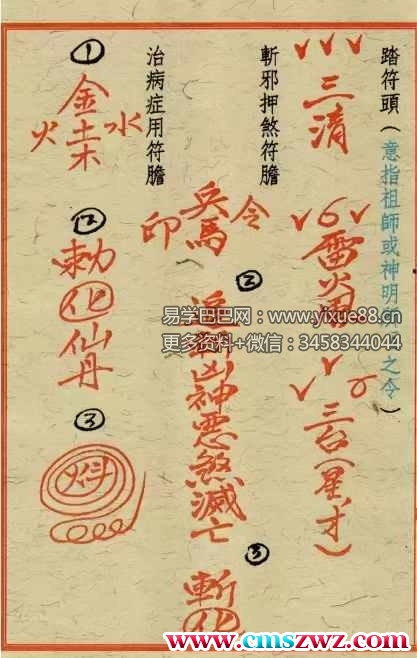 踏符頭(意指祖師或神明所之令)
三清
三台(星,才)
斬邪押煞符膽
兵馬
令
印
②
凶神惡煞滅亡
③
斬
化
治病症用符膽
①
金
火土水
木
②
勅
化
仙丹
③
易学巴巴网:www.yixue88.cn
更多资料+微信:3458344044
www.cmszwz.com